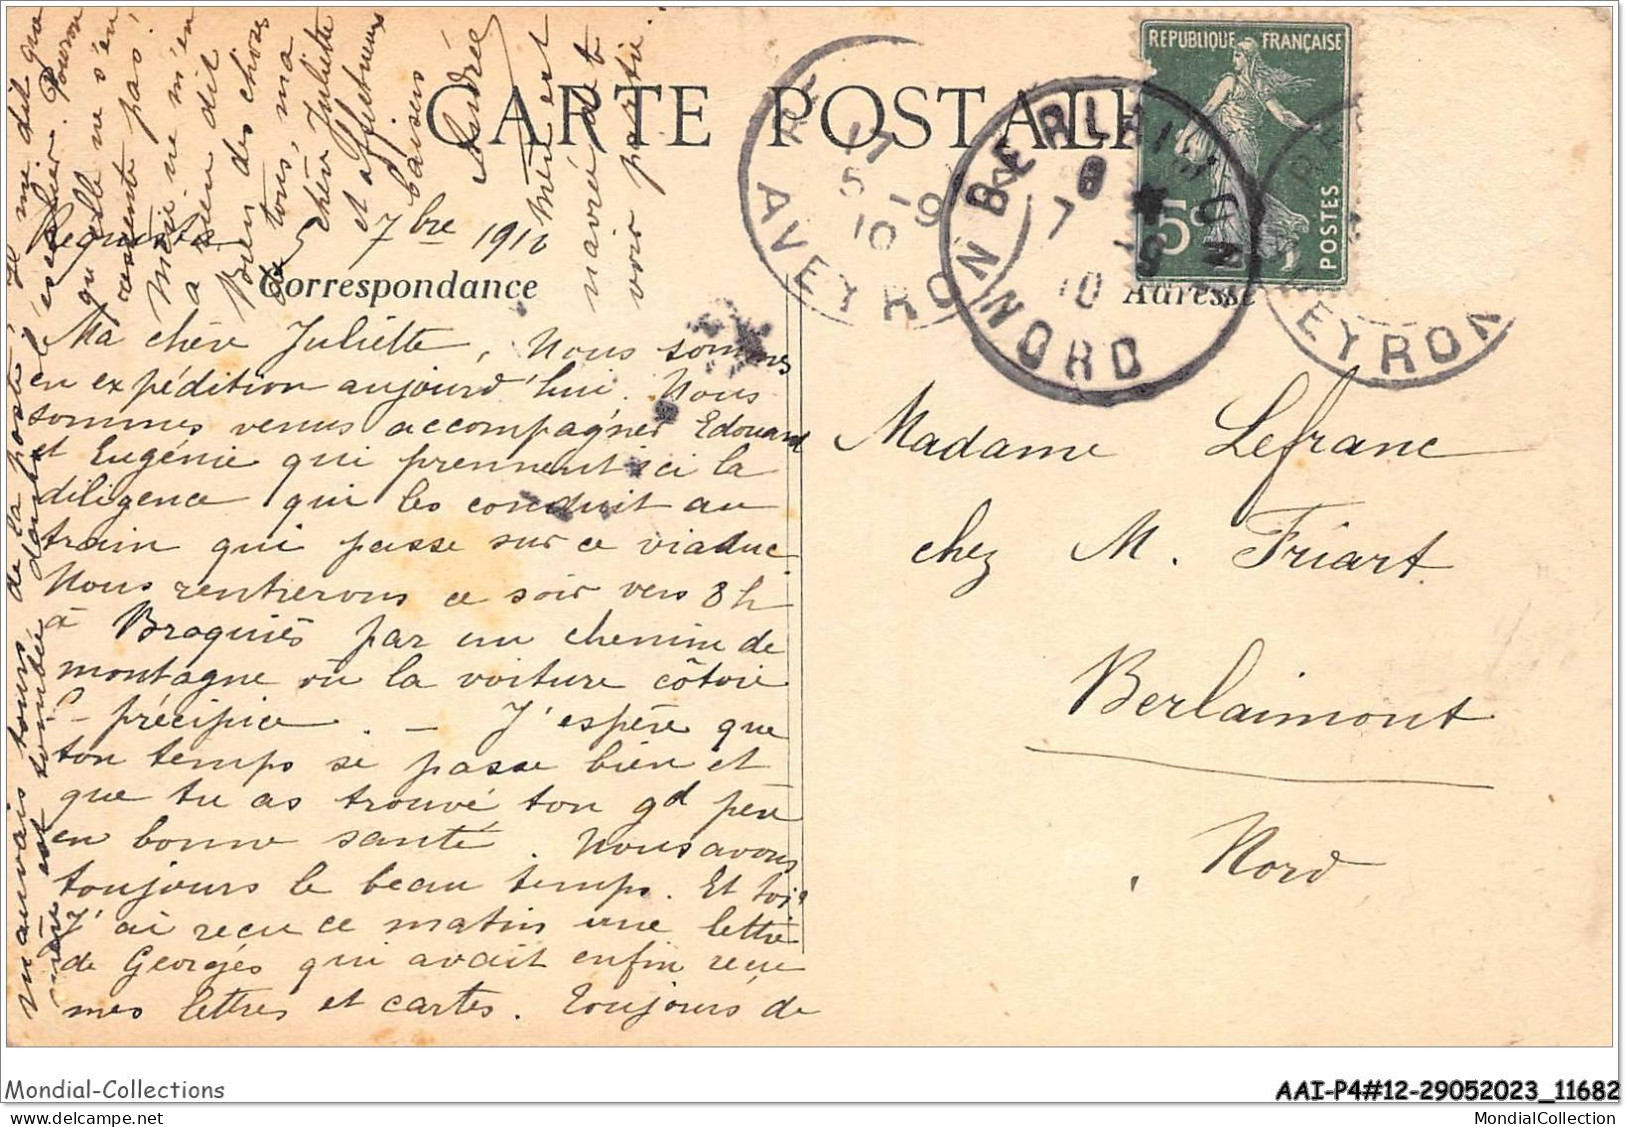 CARTE POSTALE
REPUBLIQUE FRANÇAISE
5c
POSTES
17
5 -9
10
AVEYRON
BERLAIMONT
8
7 -9
10
NORD
AVEYRON
Correspondance
Adresse
Requista 5 7bre 1910
Ma chère Juliette, Nous sommes
en expédition aujourd'hui. Nous
sommes venus accompagner Edouard
et Eugénie qui prennent ici la
diligence qui les conduit au
train qui passe sur ce viaduc
Nous rentrerons ce soir vers 8h
à Broquiès par un chemin de
montagne où la voiture côtoie
le précipice. - J'espère que
ton temps se passe bien et
que tu as trouvé ton gd père
en bonne santé. Nous avons
toujours le beau temps. Et toi?
J'ai reçu ce matin une lettre
de Georges qui avait enfin reçu
mes lettres et cartes. Toujours de
mauvais tours de la poste, Il me dit que
mère est tombée dans
l'escalier. Pourvu
qu'elle ne s'en
ressente pas!
Marie ne m'en
a rien dit
Bien des choses
de tous, ma
chère Juliette
et affectueux
baisers
Andrée
Mère est
navrée de t
voir partie.
Madame Lefranc
chez M. Friart
Berlaimont
Nord
Mondial-Collections
AAI-P4#12-29052023_11682
copyright © delcampe.net
MondialCollection